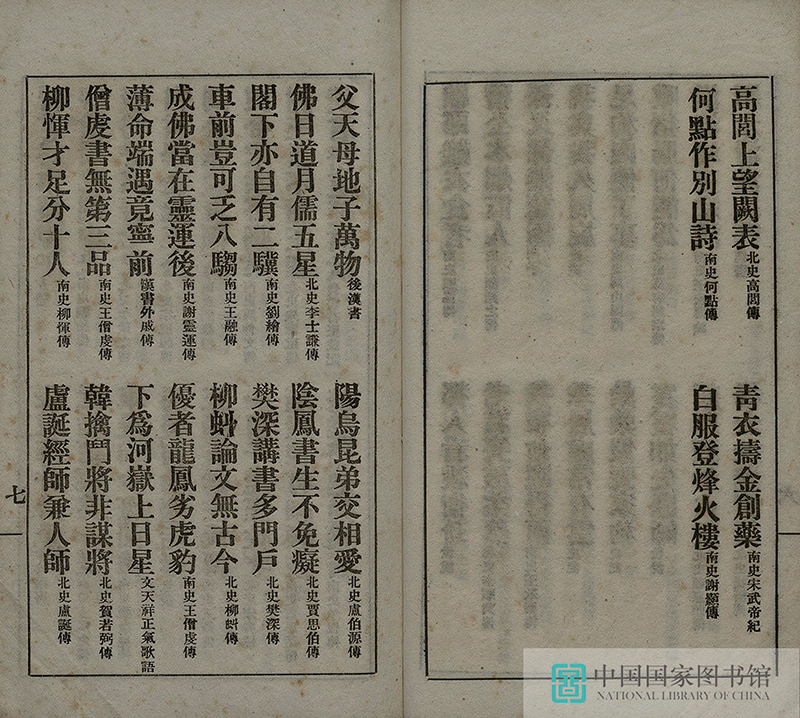 高閭上望闕表北史高閭傳
青衣擣金創藥南史宋武帝紀
何點作別山詩南史何點傳
白服登烽火樓南史謝顥傳
父天母地子萬物後漢書
陽烏昆弟交相愛北史盧伯源傳
佛日道月儒五星北史李士謙傳
陰鳳書生不免癡北史賈思伯傳
閣下亦自有二驥南史劉繪傳
樊深講書多門戶北史樊深傳
車前豈可乏八騶南史王融傳
柳蚪論文無古今北史柳蚪傳
成佛當在靈運後南史謝靈運傳
優者龍鳳劣虎豹南史王僧虔傳
薄命端遇竟寧前漢書外戚傳
下為河嶽上日星文天祥正氣歌語
僧虔書無第三品南史王僧虔傳
韓擒鬥將非謀將北史賀若弼傳
柳惲才足分十人南史柳惲傳
盧誕經師兼人師北史盧誕傳
七
中国国家图书馆
NATIONAL LIBRARY OF CHINA